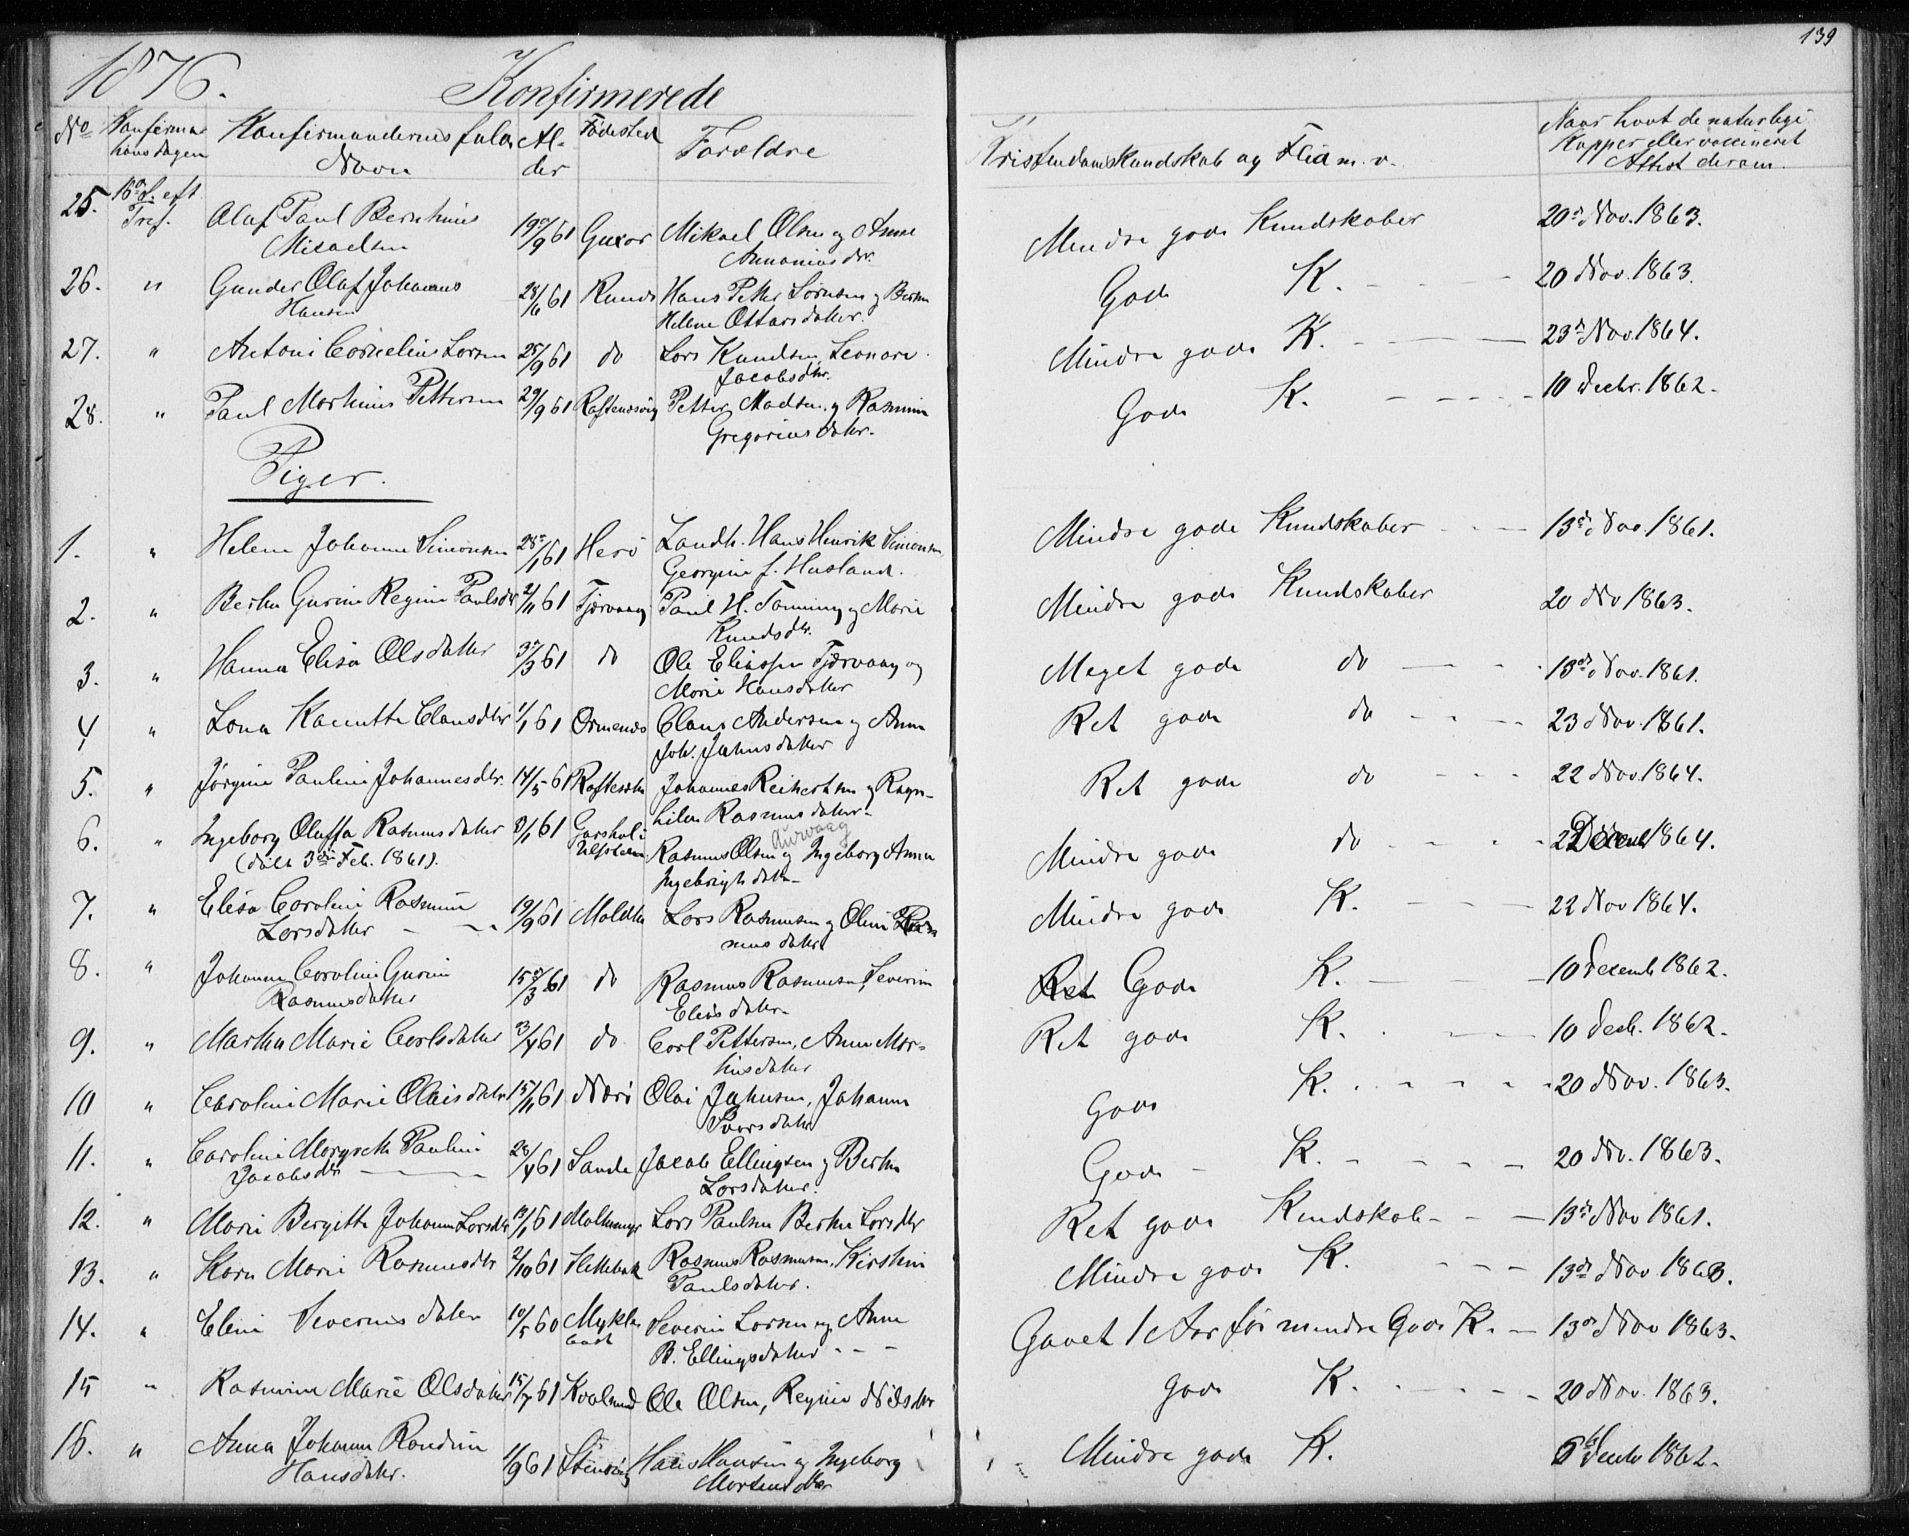 139
1876.
Konfirmerede
No Konfirma
tions dagen Konfirmandernes fulde
Navn Al-
der Fødested Forældre Kristendomskundskab og Flid m. v. Naar havt de naturlige
Kopper eller vaccineret
Attest derom.
25. 16de S. eft.
Tref. Olaf Paul Bernhinus
Micaelsen 19de/9 61 Gurxor Mikael Olsen og Anne
Annanias dtr. Mindre gode Kundskaber 20de Nov. 1863.
26. " Gunder Olaf Johannes
Hansen 28/6 61 Runde Hans Petter Sørensen og Berthe
Helene Ottars datter. Gode K. - - - 20 Nov. 1863.
27. " Antoni Cornelius Larsen 25/9 61 do Lars Knudsen, Leonore
Jacobsdtr. Mindre gode K. - - - 23de Nov. 1864.
28. " Paul Martinus Pettersen 29/9 61 Raftenesvig Petter Madsen og Rasmine
Gregorius datter. Gode K. - - - 10 Decbr. 1862.
Piger.
1. " Helene Johanne Simonsen 28de/1 61 Herö Landh. Hans Henrik Simonsen
Georgine f. Husland. Mindre gode Kundskaber - - 13de Nov. 1861.
2. " Berthe Gurine Regine Paulsdtr 2/11 61 Tjørvaag Paul H. og Marie
Knudsdtr. Mindre gode Kundskaber 20 Nov 1863.
3. " Hanna Elisa Olsdatter 3de/3 61 do Ole Eliassen Tjørvaag og
Marie Hansdatter Meget gode do - - 13de Nov. 1861.
4. " Lona Kanutte Clausdtr 1/1 61 Ormenæs Claus Andersen og Anne
Joh. Johnsdatter Ret gode do - - - 23 Nov. 1861.
5. " Jørgine Pauline Johannesdtr. 14/5 61 Johannes Reinertsen og Ragn-
hilde Rasmusdatter. Ret gode do - - - 22 Nov. 1864.
6. " Ingeborg Oluffa Rasmusdatter
(døbt 3die Feb. 1861). 8/1 61 Garshol i
Ulfsteen Aurvaag
Rasmus Olsen og Ingeborg Anne
Ingebrigtsdatter Mindre gode do - - - 22 Decemb 1864.
7. " Elisa Caroline Rasmine
Larsdatter - - 19/9 61 Moldtu Lars Rasmussen og Oline Ras
mus datter Mindre gode K. - - - 22 Nov 1864.
8. " Johanne Caroline Gurine
Rasmusdatter 15de/3 61 do Rasmus Rasmussen, Severine
Elias datter Ret Gode K. - - - 10 Decemb 1862.
9. " Marthe Marie Carlsdatter 3/4 61 do Carl Pettersen, Anne Mar-
tinsdatter Ret gode K. - - - 10 Decb. 1862.
10 " Caroline Marie Olaisdatter 15/11 61 Nærö Olai Johnsen, Johanne
Iversdatter Gode K. - - - 20 Nov. 1863.
11. " Caroline Margrethe Pauline
Jacobsdtr 28/4 61 Sande Jacob Ellingsen og Berthe
Larsdatter. Gode - K. - - - 20 Nov. 1863.
12. " Marie Bergitte Johanne Larsdtr 13/1 61 Moltumyr Lars Paulsen Berthe Larsdtr Ret gode Kundskab - - 13de Nov 1861.
13. " Karn Marie Rasmusdtr 2/10 61 Flottebak Rasmus Rasmussen, Kirstine
Paulsdatter. Mindre gode K. - - - 13de Nov 1863.
14. " Eline Severinsdatter 10/5 60 Mykle
bust Severin Larsen og Anne
B. Ellingsdatter - - - Gaaet 1 Aar før mindre Gode K. - 13de Nov 1863.
15 " Rasmine Marie Olsdatter 15/7 61 Kvalsund Ole Olsen, Regine Nilsdtr gode K. - - - 20 Nov. 1863.
16. " Anna Johanne Randine
Hansdatter. 1/9 61 Stensvig Hans Hansen og Ingeborg
Mortensdtr Mindre gode K. 6te Decb 1862.